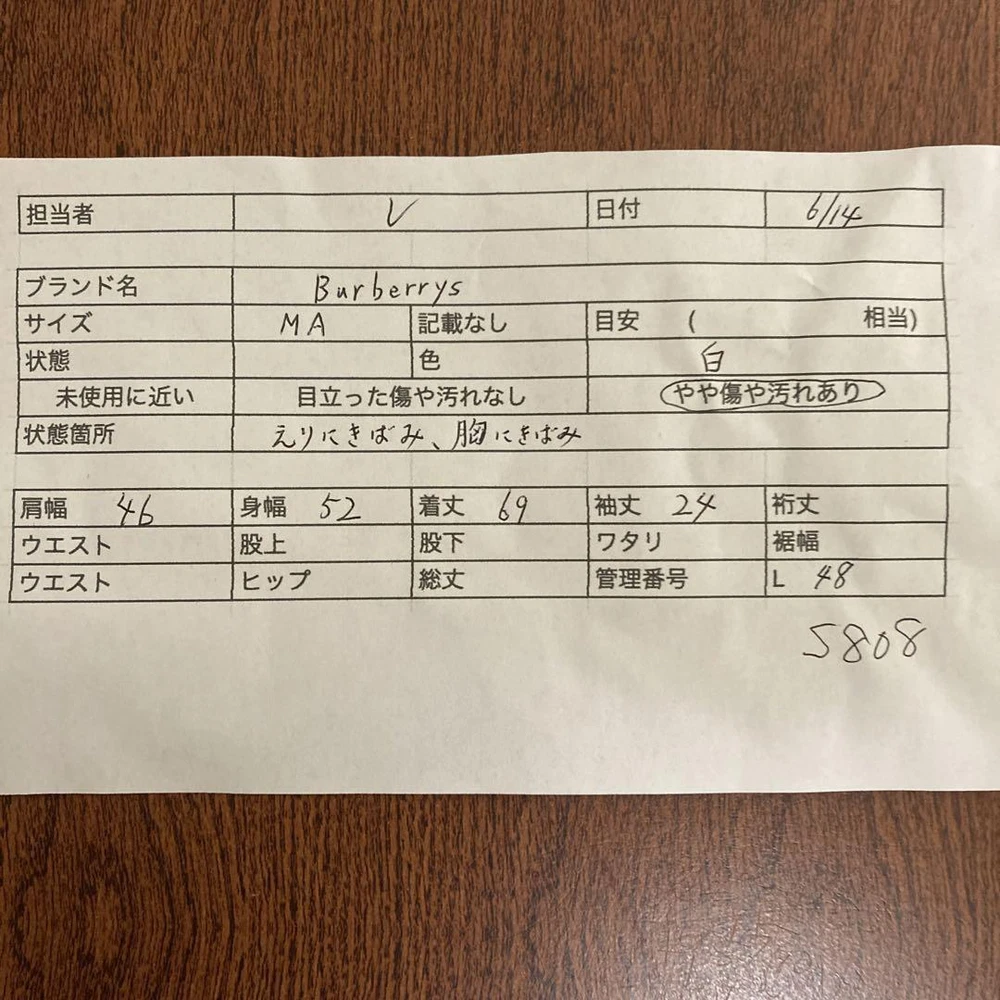 担当者 V 日付 6/14
ブランド名 Burberrys
サイズ MA 記載なし 目安 ( 相当)
状態 色 白
未使用に近い 目立った傷や汚れなし やや傷や汚れあり
状態箇所 えりにきばみ、胸にきばみ
肩幅 46 身幅 52 着丈 69 袖丈 24 裄丈
ウエスト 股上 股下 ワタリ 裾幅
ウエスト ヒップ 総丈 管理番号 L 48
5808